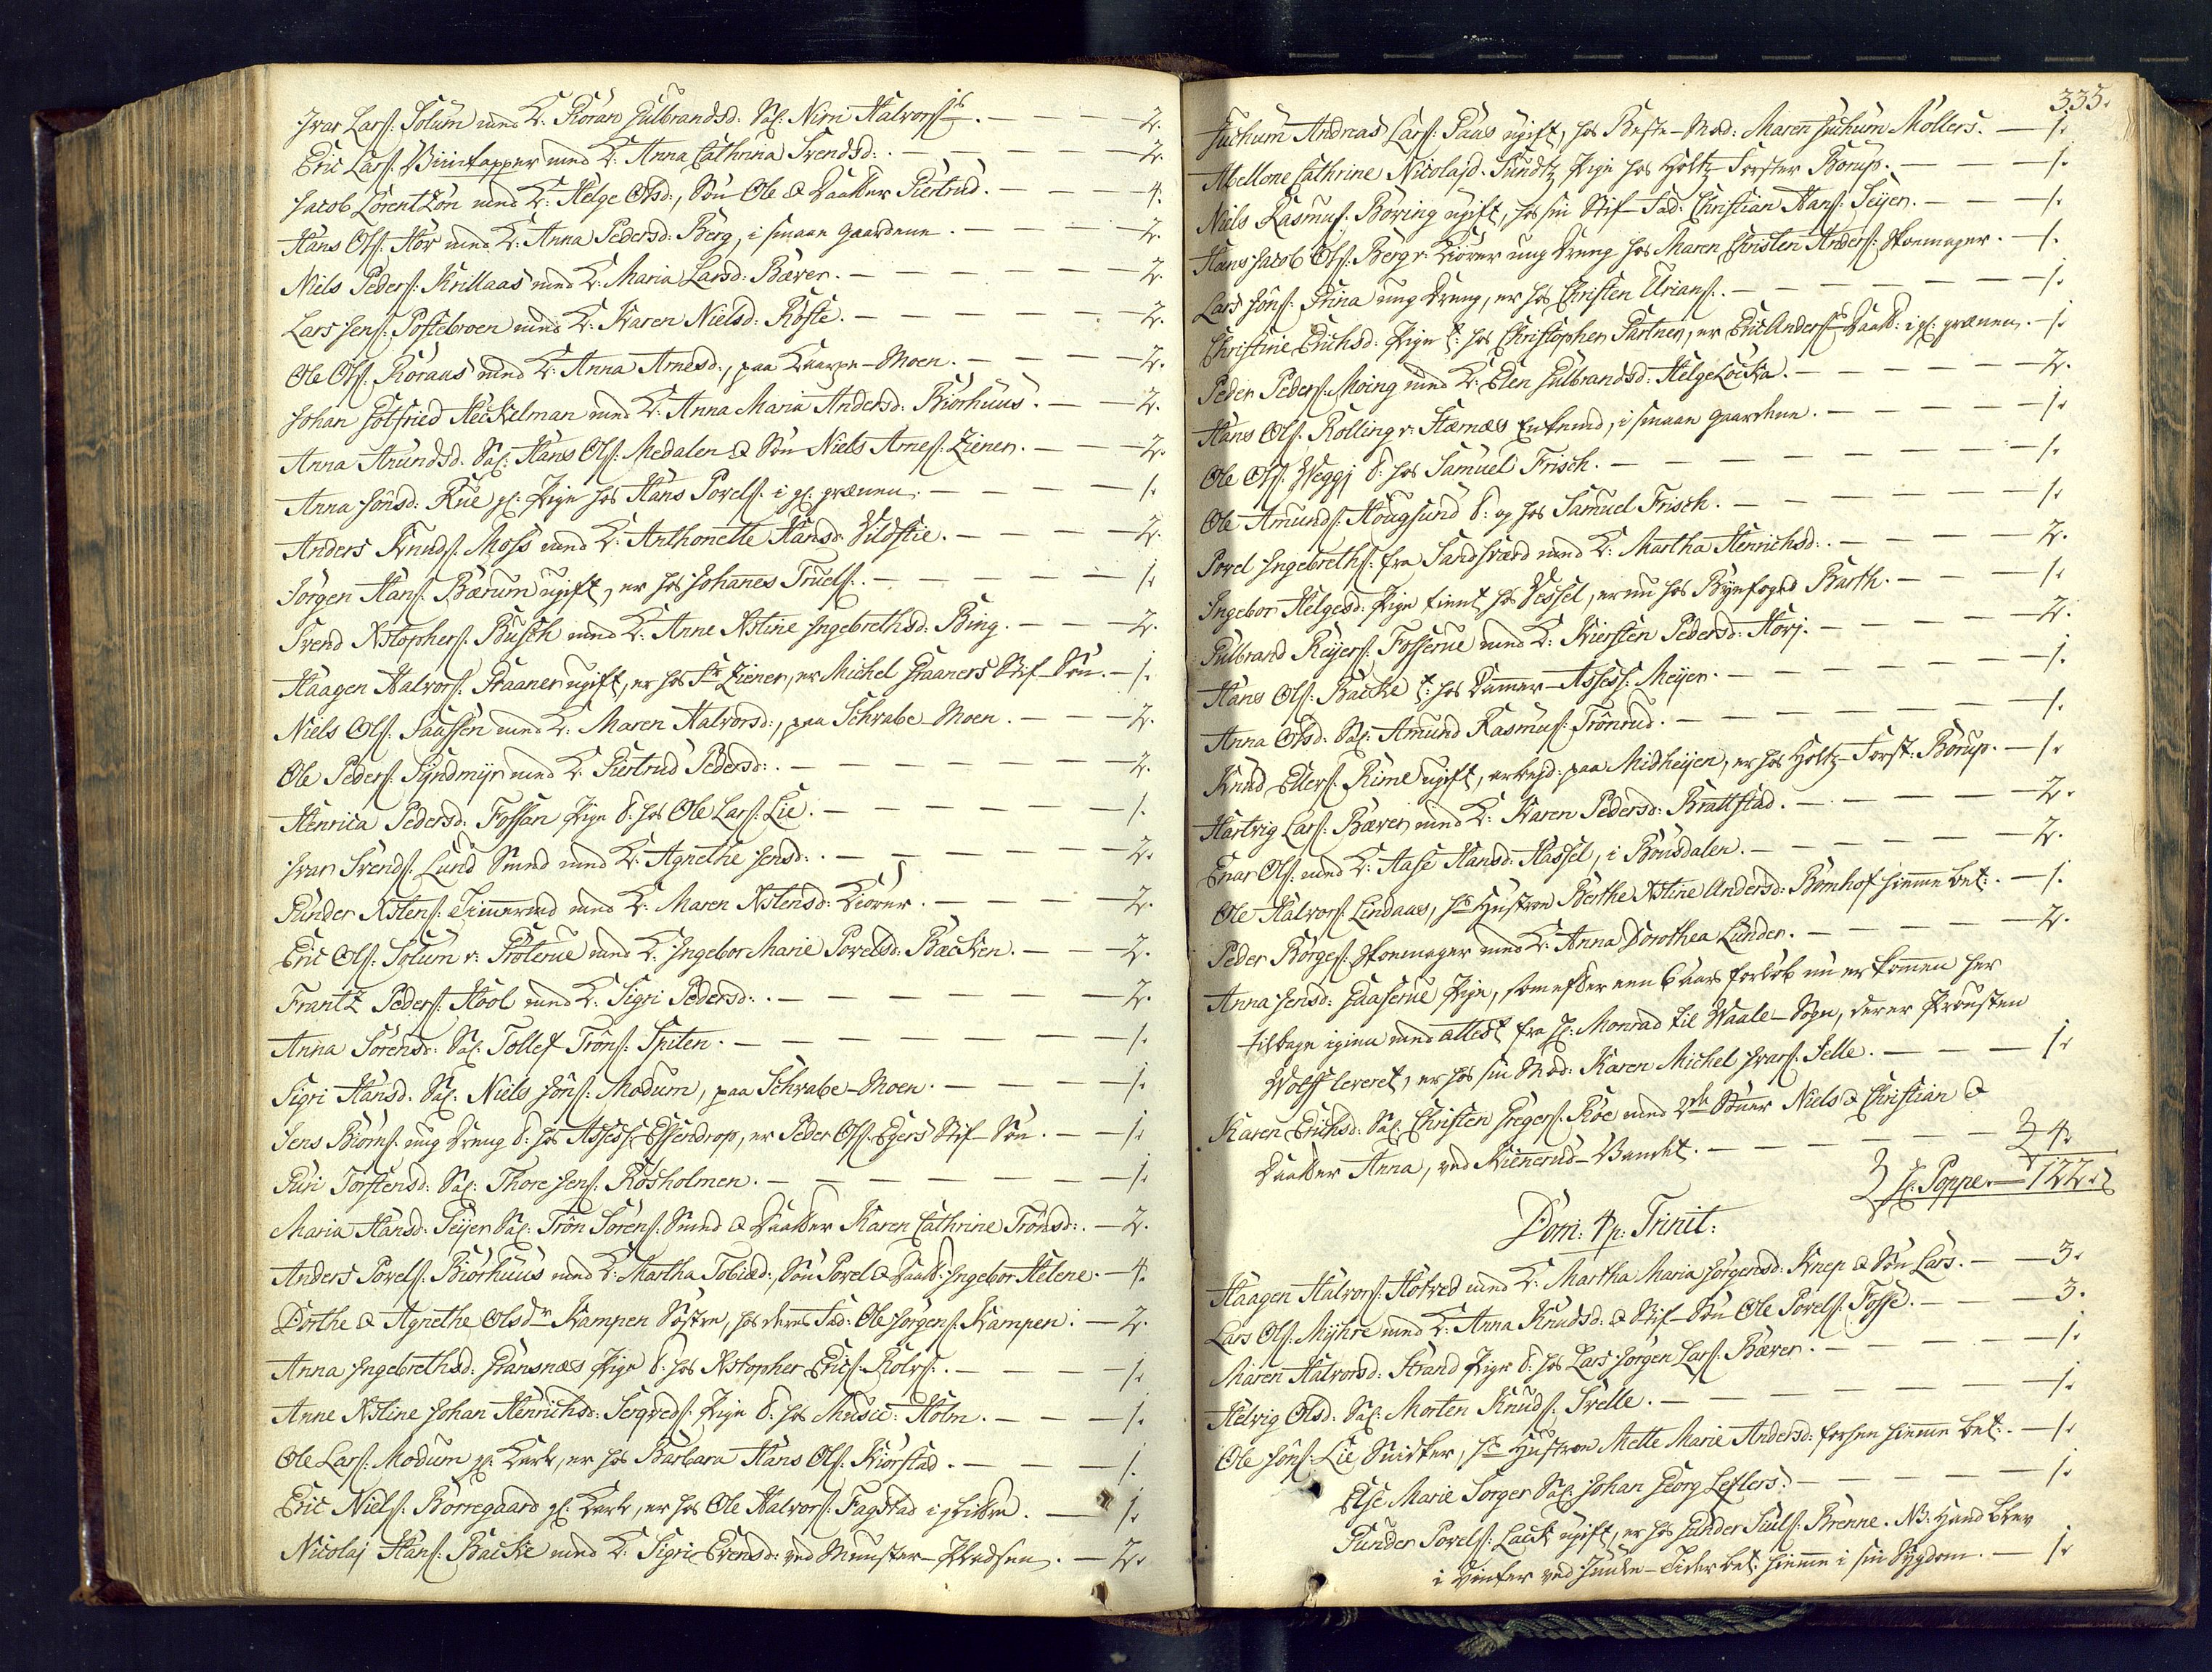 Ivar Lars: Solum med K: Giøran Gulbrandsd: Sal: Niri Halvors:
Eric Lars: Viintapper med K: Anna Cathrina Svendsd: — 2.
Jacob LorentZøn med K: Helge Olsd:, Søn Ole & Daatter Giertrud. — 4.
Hans Ols: Hør med K: Anna Pedersd: Berg, i smaae gaardene. — 2.
Niels Peders: Krillaas med K: Maria Larsd: Bæver. — 2.
Lars Jens: Postebroen med K: Karen Nielsd: Røste. — 2.
Ole Ols: Røraas med K: Anna Arnesd:, paa Moen. — 2.
Johan Gotfried Heckelman med K: Anna Maria Andersd: Biørhuus. — 2.
Anna Amundsd: Sal: Hans Ols: Medalen & Søn Niels Arnes: Ziener. — 2.
Anna Jønsd: Rue gl: Pige hos Hans Povels: i gl: grænen. — 1.
Anders Knuds: Moss med K: Anthonette Hansd: Vildstie. — 2.
Jørgen Hans: Bærum ugift, er hos Johanes Truels: — 1.
Svend Xstophers: Busch med K: Anne Xstine Ingebrethsd: Bing. — 2.
Haagen Halvors: Graaner ugift, er hos Sr Ziener, er Michel Graaners Stif-Søn. — 1.
Niels Ols: Saassen med K: Maren Halvorsd:, paa Schvabe-Moen. — 2.
Ole Peders: Syndmyr med K: Giertrud Pedersd: — 2.
Henrica Pedersd: Fossan Pige t: hos Ole Lars: Lie. — 1.
Ivar Svends: Lund Smed med K: Agnethe Jensd: — 2.
Gunder Xstens: Timermd med K: Maren Xstensd: Kiørner. — 2.
Eric Ols: Solum v: Prøterue med K: Ingebor Marie Povelsd: Bæcken. — 2.
Frantz Peders: Hool med K: Sigri Pedersd: — 2.
Anna Sørensd: Sal: Tollef Trøns: Spiten. — 1.
Sigri Hansd: Sal: Niels Jøns: Modum, paa Schvabe-Moen. — 1.
Jens Biørns: ung Dreng t: hos Assess: Essendrop, er Peder Ols: Egers Stif-Søn. — 1.
Guri Torstensd: Sal: Thore Jens: Røsholmen. — 1.
Maria Hansd: Seijer Sal: Trøn Sørens: Smed & Daatter Karen Cathrine Trønsd: — 2.
Anders Povels: Biørhuus med K: Martha Tobiæd:, Søn Povel & Daatt: Ingebor Helene. — 4.
Dorthe & Agnethe Olsdr Kampen Søstre, hos deres Fad: Ole Jørgens: Kampen: — 2.
Anna Ingebrethsd: Gransnæs Pige t: hos Xstopher Erics: Rolvs: — 1.
Anne Xstine Johan Henrichsd: Pige t: hos Music: Holm. — 1.
Ole Lars: Modum gl: Karl, er hos Barbara Hans Ols: Kiørstad. — 1.
Eric Niels: Borregaard gl: Karl, er hos Ole Halvors: Fagstad i — 1.
Nicolaj Hans: Backe med K: Sigri Evensd: ved Munster-Pladsen. — 2.
335.
Juchum Andreas Lars: Paus ugift, hos Beste-Mod: Maren Juchum Møllers. — 1.
Abellone Cathrine Nicolajd: Sundtz Pige hos Holtz-Forster Borup. — 1.
Niels Rasmus: Børing ugift, hos sin Stif-Fad: Christian Hans: Seijer. — 1.
Hans Jacob Ols: Berg v: Kiørner ung Dreng hos Maren Christen Anders: Skomager. — 1.
Lars Jøns: Frina ung Dreng, er hos Christen Urians: — 1.
Christine Erichsd: Pige t: hos Christopher Partner, er Eric Anders: Daatt: i gl: grænen. — 1.
Peder Peders: Moing med K: Elen Gulbrandsd: Helgeløcka. — 2.
Hans Ols: Rolling v: Stærnæs Enkemd, i smaae gaardene. — 1.
Ole Ols: Weggj t: hos Samuel Frisch. — 1.
Ole Amunds: Hougsund t: og hos Samuel Frisch. — 1.
Povel Ingebreths: fra Sandsværd med K: Martha Henrichsd: — 2.
Ingebor Helgesd: Pige tient hos Vessel, er nu hos Byefoged Barth. — 1.
Gulbrand Reijers: Fosserue med K: Kiersten Pedersd: Hovj. — 2.
Hans Ols: Backe t: hos Kammer-Assess: Meijer. — 1.
Anna Olsd: Sal: Amund Rasmus: Trønrud. — 1.
Knud Ellers: Rime ugift, arbejd: paa Midheijen, er hos Holtz-Forst: Borup. — 1.
Hartvig Lars: Bæver med K: Karen Pedersd: Brattstad. — 2.
Enar Ols: med K: Aase Hansd: Hassel, i Bønsdalen. — 2.
Ole Halvors: Lindaas, hs Hustroe Berthe Xstine Andersd: Bomhof hieme bet: — 1.
Peder Børges: Skomager med K: Anna Dorothea Lunder. — 2.
Anna Jensd: Gaaserue Pige, som efter een 6 aars forløb nu er kommen her
tilbage igien med attest fra Hr: Monrad til Waale-Sogn, der er Provsten
Wolff leveret, er hos sin Mod: Karen Michel Ivars: Felle. — 1.
Karen Erichsd: Sal: Christen Gregers: Roe med 2de Sønner Niels & Christian &
Daatter Anna, ved Kiennerud-Vandet. — 4.
Hr: Poppe. — 122.
Dom: 4 p: Trinit:
Haagen Halvors: Hotved med K: Martha Maria Jørgensd: Knep & Søn Lars. — 3.
Lars Ols: Myhre med K: Anna Knudsd: & Stif-Søn Ole Povels: Fosse. — 3.
Maren Halvorsd: Strand Pige t: hos Lars Jørgen Lars: Bæver. — 1.
Helvig Olsd: Sal: Morten Knuds: Trelle. — 1.
Ole Jøns: Lie Snidker, hs Hustroe Mette Marie Andersd: forhen hieme bet: — 1.
Else Marie Sorger Sal: Johan Georg Leflers: — 1.
Gunder Povels: Laack ugift, er hos Gunder Juuls: Brenne. NB. Hand blev
i Vinter ved Juule-Tider bet: hieme i sin Sygdom. — 1.